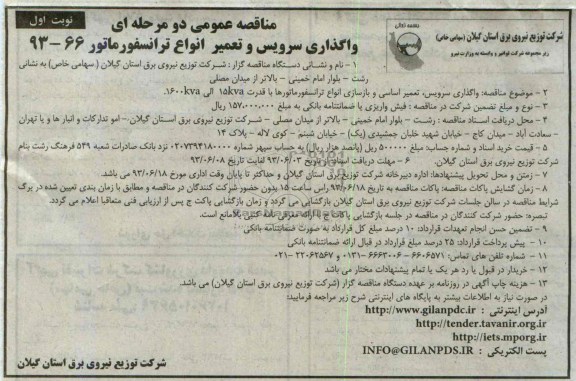 نوبت اول
شرکت توزیع نیروی برق استان گیلان (سهامی خاص)
زیر مجموعه شرکت توانیر و وابسته به وزارت نیرو
مناقصه عمومی دو مرحله ای
واگذاری سرویس و تعمیر انواع ترانسفورماتور ۶۶-۹۳
۱ - نام و نشانی دستگاه مناقصه گزار : شرکت توزیع نیروی برق استان گیلان (سهامی خاص) به نشانی
رشت - بلوار امام خمینی - بالاتر از میدان مصلی
۲ - موضوع مناقصه: واگذاری سرویس، تعمیر اساسی و بازسازی انواع ترانسفورماتورها با قدرت ۱۵kva الی ۱۶۰۰kva.
۳ - نوع و مبلغ تضمین شرکت در مناقصه : فیش واریزی یا ضمانتنامه بانکی به مبلغ ۱۵۷.۰۰۰.۰۰۰ ریال
۴ - محل دریافت اسناد مناقصه : رشت - بلوار امام خمینی - بالاتر از میدان مصلی - شرکت توزیع نیروی برق استان گیلان- امو تدارکات و انبار ها و یا تهران
سعادت آباد - میدان کاج - خیابان شهید خلبان جمشیدی (یک) - خیابان شبنم - کوی لاله - پلاک ۱۴
۵ - قیمت خرید اسناد و شماره حساب: مبلغ ۵۰۰۰۰۰ ریال (پانصد هزار ریال) به حساب سپهر شماره ۰۲۰۷۳۹۴۱۸۰۰۰۰ نزد بانک صادرات شعبه ۵۴۹ فرهنگ رشت بنام
شرکت توزیع نیروی برق استان گیلان. ۶ - مهلت دریافت اسناد: از تاریخ ۹۳/۰۶/۰۳ لغایت تاریخ ۹۳/۰۶/۰۸
۷ - زمتن و محل تحویل پیشنهادها: اداره دبیرخانه شرکت توزیع برق استان گیلان و حداکثر تا پایان وقت اداری مورخ ۹۳/۰۶/۱۸ می باشد.
۸ - زمان گشایش پاکات مناقصه: پاکات مناقصه به تاریخ ۹۳/۰۶/۱۸ راس ساعت ۱۵ بدون حضور شرکت کنندگان در مناقصه و مطابق با زمان بندی تعیین شده در برگ
شرایط مناقصه در سالن جلسات شرکت توزیع نیروی برق استان گیلان بازگشایی می گردد و زمان بازگشایی پاکت ج پس از ارزیابی فنی متعاقبا اعلام می گردد.
تبصره: حضور شرکت کنندگان در مناقصه در جلسه بازگشایی پاکات ج با ارائه معرفی نامه کتبی بلامانع است.
۹ - تضمین حسن انجام تعهدات قرارداد: ۱۰ درصد مبلغ کل قرارداد به صورت ضمانتنامه بانکی
۱۰ - پیش پرداخت قرارداد: ۲۵ درصد مبلغ قرارداد در قبال ارائه ضمانتنامه بانکی
۱۱ - شماره تلفن های تماس: ۶۶۰۶۵۷۱ - ۶۶۶۳۰۰۶-۰۱۳۱ و ۲۲۰۶۲۵۶۷-۰۲۱
۱۲ - خریدار در قبول یا رد هر یک یا تمام پیشنهادات مختار می باشد
۱۳ - هزینه چاپ آگهی در روزنامه بر عهده دستگاه مناقصه گزار (شرکت توزیع نیروی برق استان گیلان) می باشد.
در صورت نیاز به اطلاعات بیشتر به پایگاه های اینترنتی شرح زیر مراجعه فرمایید:
آدرس اینترنتی : http://www.gilanpdc.ir
http://tender.tavanir.org.ir
http://iets.mporg.ir
پست الکتریکی : INFO@GILANPDS.IR
شرکت توزیع نیروی برق استان گیلان